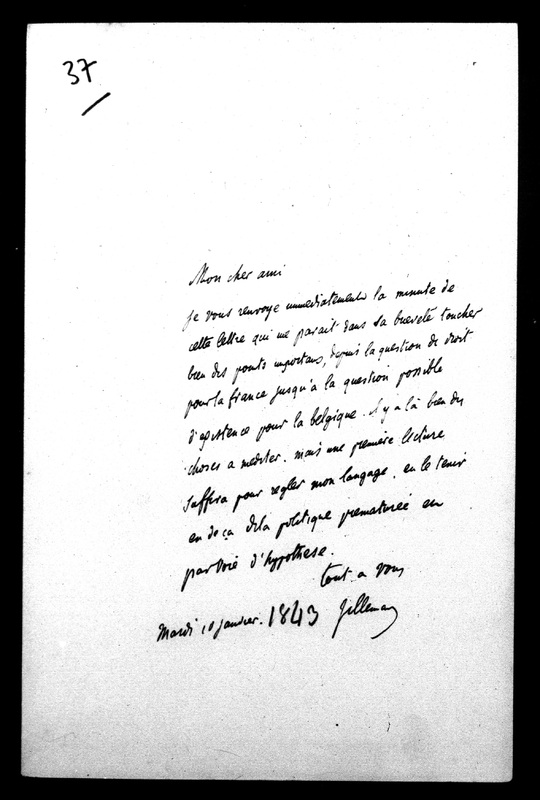 37
Mon cher ami
je vous renvoye immediatement la minute de
cette lettre qui me parait dans sa breveté toucher
bien des points importans, depuis la question de droit
pour la france jusqu'a la question possible
d'existence pour la belgique. il y a là bien des
choses a mediter. mais une première lecture
suffira pour regler mon langage, en le tenir
en deça dela politique prematurée ou
par voie d'hypothese.
tout a vous
Mardi 10 janvier. 1843 Villemain